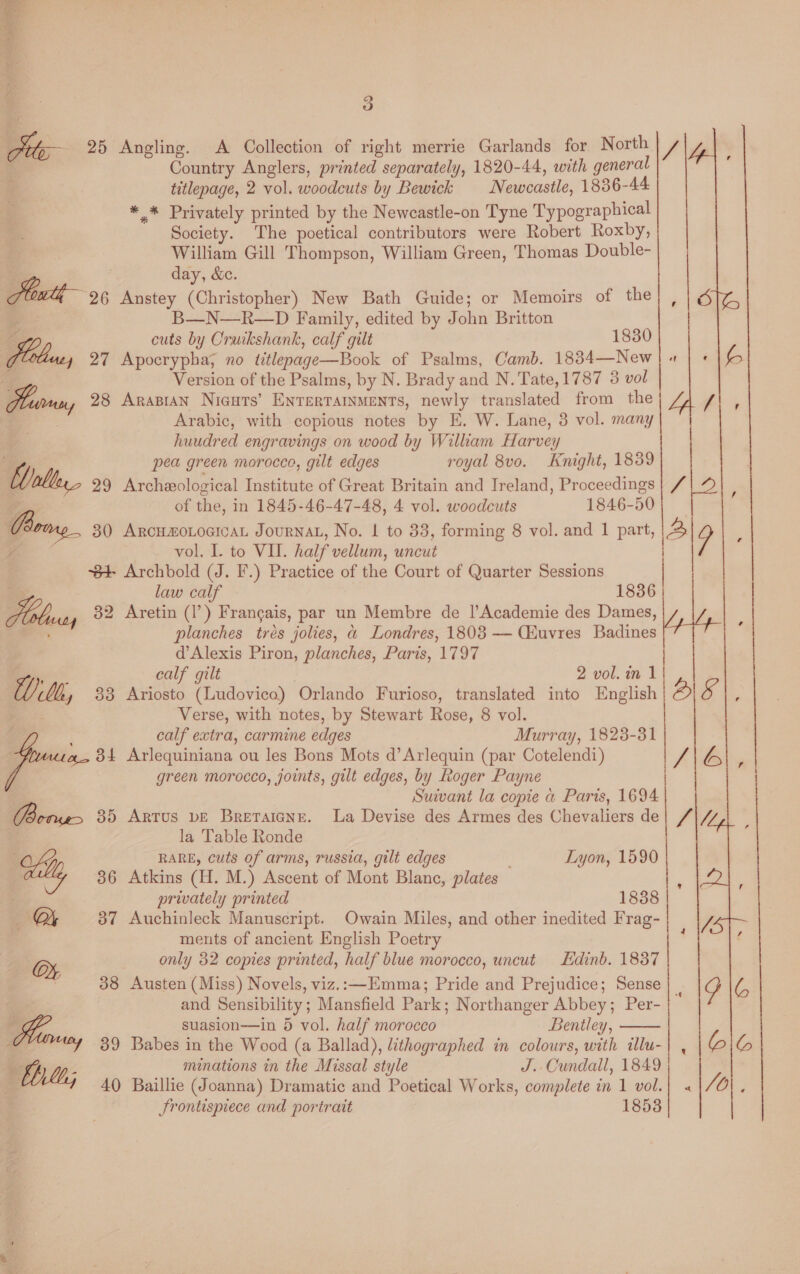 3
25 Angling. A Collection of right merrie Garlands for North
Country Anglers, printed separately, 1820-44, with general
titlepage, 2 vol. woodcuts by Bewick Newcastle, 1836-44
*** Privately printed by the Newcastle-on Tyne Typographical
Society. The poetical contributors were Robert Roxby,
William Gill Thompson, William Green, Thomas Double-
day, &c.
Heath 26 Anstey (Christopher) New Bath Guide; or Memoirs of the
B—N—R—D Family, edited by John Britton
cuts by Cruikshank, calf gilt 1830
Holmes 27 Apocrypha, no titlepage—Book of Psalms, Camb. 1834—New
Version of the Psalms, by N. Brady and N. Tate, 1787 3 vol
28 ARABIAN NIGHTS' ENTERTAINMENTS, newly translated from the
Arabic, with copious notes by E. W. Lane, 3 vol. many
huudred engravings on wood by William Harvey
pea green morocco, gilt edges royal 8vo. Knight, 1839
Waller 29 Archæological Institute of Great Britain and Ireland, Proceedings 1 2
of the, in 1845-46-47-48, 4 vol. woodcuts 1846-50
Boone 30 ARCHÆOLOGICAL JOURNAL, No. 1 to 33, forming 8 vol. and 1 part, 3 9
vol. I. to VII. half vellum, uncut
31 Archbold (J. F.) Practice of the Court of Quarter Sessions
law calf 1836
Holmes 32 Aretin (l') Français, par un Membre de l'Academie des Dames,
planches très jolies, à Londres, 1803 — Œuvres Badines
d'Alexis Piron, planches, Paris, 1797
calf gilt 2 vol. in 1
Willis 33 Ariosto (Ludovico) Orlando Furioso, translated into English 2 8
Verse, with notes, by Stewart Rose, 8 vol.
calf extra, carmine edges Murray, 1823-31
34 Arlequiniana ou les Bons Mots d'Arlequin (par Cotelendi) 1 6
green morocco, joints, gilt edges, by Roger Payne
Suivant la copie à Paris, 1694
Boone 35 ARTUS DE BRETAIGNE. La Devise des Armes des Chevaliers de
la Table Ronde
RARE, cuts of arms, russia, gilt edges Lyon, 1590
Lilly 36 Atkins (H. M.) Ascent of Mont Blanc, plates
privately printed 1838 2
37 Auchinleck Manuscript. Owain Miles, and other inedited Frag-
ments of ancient English Poetry 15
only 32 copies printed, half blue morocco, uncut Edinb. 1837
38 Austen (Miss) Novels, viz.:—Emma; Pride and Prejudice; Sense 9 6
and Sensibility; Mansfield Park; Northanger Abbey; Per-
suasion—in 5 vol. half morocco Bentley, ——
39 Babes in the Wood (a Ballad), lithographed in colours, with illu- 6 6
minations in the Missal style J. Cundall, 1849
Willis 40 Baillie (Joanna) Dramatic and Poetical Works, complete in 1 vol. 10
frontispiece and portrait 1853